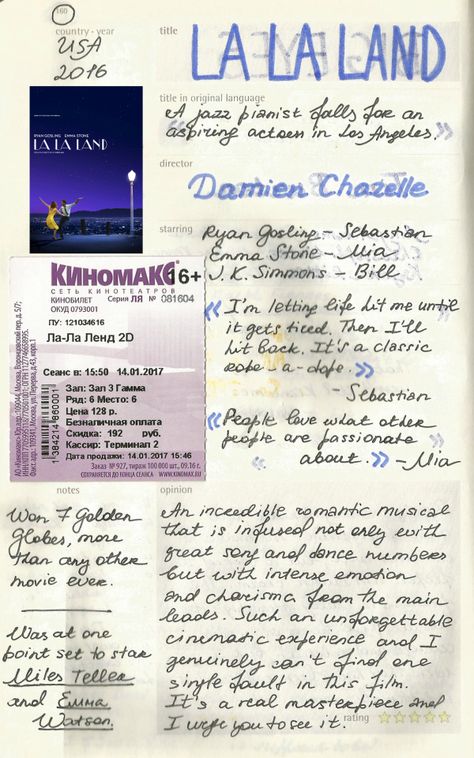 160
country - year
USA
2016
title
LA LA LAND
title in original language
A jazz pianist falls for an
aspiring actress in Los Angeles.
director
Damien Chazelle
RYAN GOSLING EMMA STONE
LA LA LAND
starring
Ryan Gosling – Sebastian
Emma Stone – Mia
J. K. Simmons – Bill
КИНОМАКС 16+
СЕТЬ КИНОТЕАТРОВ
КИНОБИЛЕТ Серия ЛЯ № 081604
ОКУД 0793001
ПУ: 121034616
Ла-Ла Ленд 2D
Сеанс в: 15:50 14.01.2017
Зал: Зал 3 Гамма
Ряд: 6 Место: 6
Цена 128 р.
Безналичная оплата
Скидка: 192 руб.
Кассир: Терминал 2
Дата продажи: 14.01.2017 15:46
Заказ № 927, тираж 100 000 шт., 09.16 г.
СОХРАНЯЕТСЯ ДО КОНЦА СЕАНСА WWW.KINOMAX.RU
« I'm letting life hit me until
it gets tired. Then I'll
hit back. It's a classic
rope - a - dope. »
– Sebastian
« People love what other
people are passionate
about. » – Mia
notes
Won 7 Golden
Globes, more
than any other
movie ever.
Was at one
point set to star
Miles Teller
and Emma
Watson.
opinion
An incredible romantic musical
that is infused not only with
great song and dance numbers
but with intense emotion
and charisma from the main
leads. Such an unforgettable
cinematic experience and I
genuinely can't find one
single fault in this film.
It's a real masterpiece and
I urge you to see it.
rating